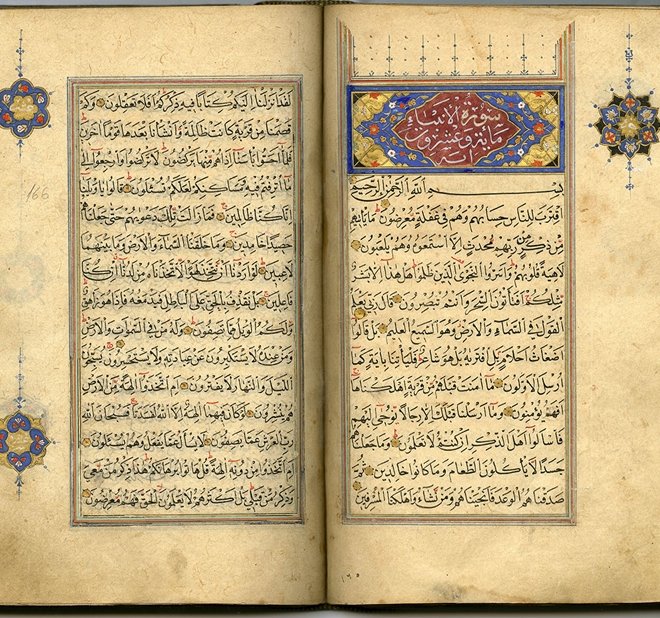 سورة الانبياء
مائة وعشرون
اية
بسم الله الرحمن الرحيم
اقترب للناس حسابهم وهم في غفلة معرضون ما ياتيهم
من ذكر من ربهم محدث الا استمعوه وهم يلعبون
لاهية قلوبهم واسروا النجوى الذين ظلموا هل هذا الا بشر
مثلكم افتاتون السحر وانتم تبصرون قال ربي يعلم
القول في السماء والارض وهو السميع العليم بل قالوا
اضغاث احلام بل افتريه بل هو شاعر فلياتنا باية كما
ارسل الاولون ما امنت قبلهم من قرية اهلكناها
افهم يؤمنون وما ارسلنا قبلك الا رجالا نوحي اليهم
فاسالوا اهل الذكر ان كنتم لا تعلمون وما جعلناهم
جسدا لا ياكلون الطعام وما كانوا خالدين ثم
صدقناهم الوعد فانجيناهم ومن نشاء واهلكنا المسرفين
لقد انزلنا اليكم كتابا فيه ذكركم افلا تعقلون وكم
قصمنا من قرية كانت ظالمة وانشانا بعدها قوما اخرين
فلما احسوا باسنا اذا هم منها يركضون لا تركضوا وارجعوا الى
ما اترفتم فيه ومساكنكم لعلكم تسئلون قالوا يا ويلنا
انا كنا ظالمين فما زالت تلك دعويهم حتى جعلناهم
حصيدا خامدين وما خلقنا السماء والارض وما بينهما
لاعبين لو اردنا ان نتخذ لهوا لاتخذناه من لدنا ان كنا
فاعلين بل نقذف بالحق على الباطل فيدمغه فاذا هو زاهق
ولكم الويل مما تصفون وله من في السموات والارض
ومن عنده لا يستكبرون عن عبادته ولا يستحسرون يسبحون
الليل والنهار لا يفترون ام اتخذوا الهة من الارض
هم ينشرون لو كان فيهما الهة الا الله لفسدتا فسبحان الله
رب العرش عما يصفون لا يسئل عما يفعل وهم يسئلون
ام اتخذوا من دونه الهة قل هاتوا برهانكم هذا ذكر من معي
وذكر من قبلي بل اكثرهم لا يعلمون الحق فهم معرضون
166